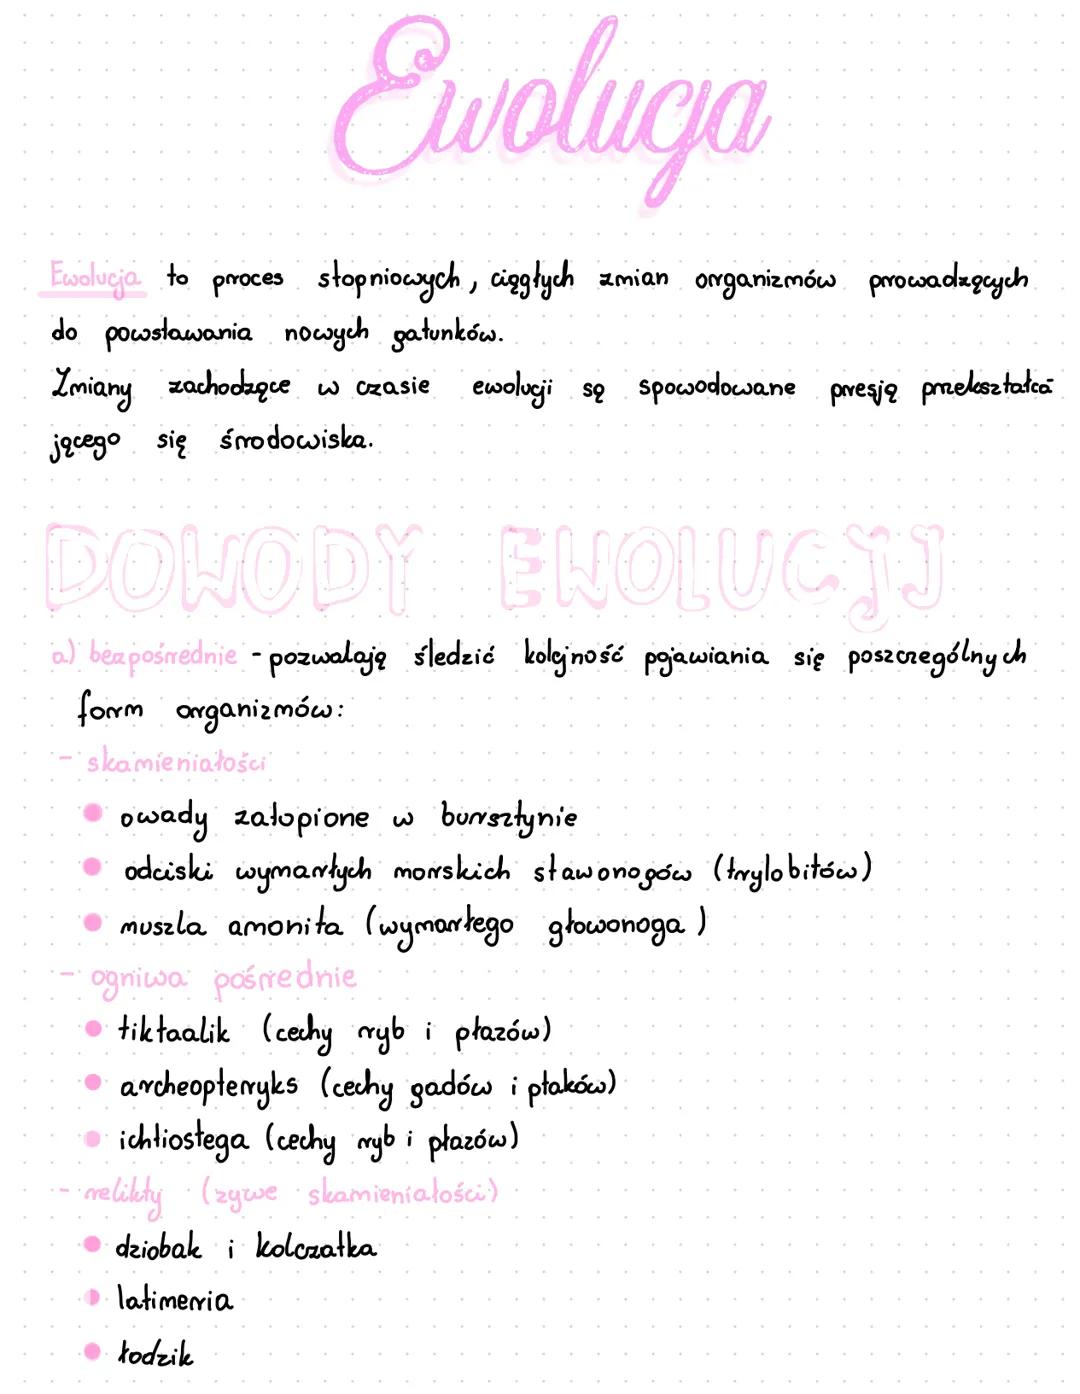 Ewolucja
Ewolucja to proces stopniowych, ciągłych zmian organizmów prowadzących
do powstawania nowych gatunków.
Zmiany zachodzące w czasie ewolucji są spowodowane presją przekształca-
jącego się środowiska.
DOWODY EWOLUCJI
a) bezpośrednie - pozwalają śledzić kolejność pojawiania się poszczególnych
form organizmów:
- skamieniałości
• owady zatopione w bursztynie
• odciski wymarłych morskich stawonogów (trylobitów)
• muszla amonita (wymarłego głowonoga)
- ogniwa pośrednie
• tiktaalik (cechy ryb i płazów)
• archeopteryks (cechy gadów i ptaków)
• ichtiostega (cechy ryb i płazów)
- relikty (żywe skamieniałości)
• dziobak i kolczatka
• latimeria
• łodzik